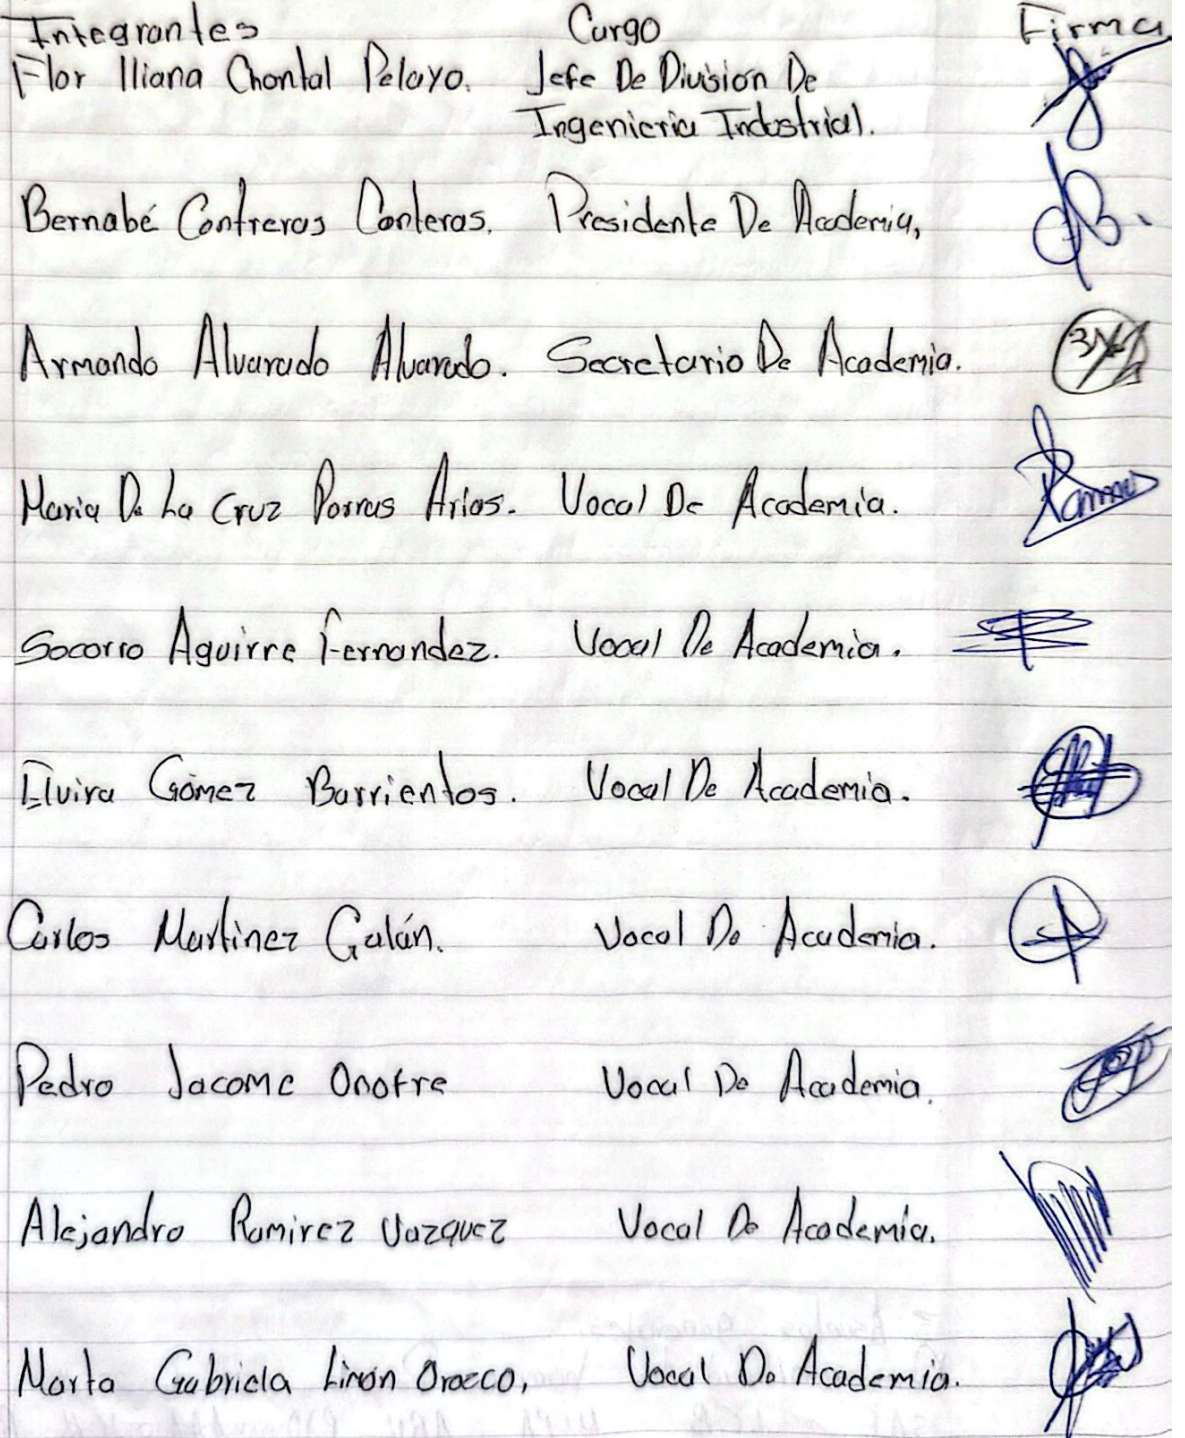 Integrantes Cargo Firma
Flor Iliana Chontal Pelayo. Jefe De Division De
Ingenieria Industrial.
Bernabé Contreras Conteras. Presidente De Academia,
Armando Alvarado Alvarado. Secretario De Academia.
Maria De La Cruz Porras Arias. Vocal De Academia.
Socorro Aguirre Fernandez. Vocal De Academia.
Elvira Gómez Barrientos. Vocal De Academia.
Carlos Martinez Galán. Vocal De Academia.
Pedro Jacome Onofre Vocal De Academia.
Alejandro Ramirez Vazquez Vocal De Academia.
Marta Gabriela Limón Orozco, Vocal De Academia.